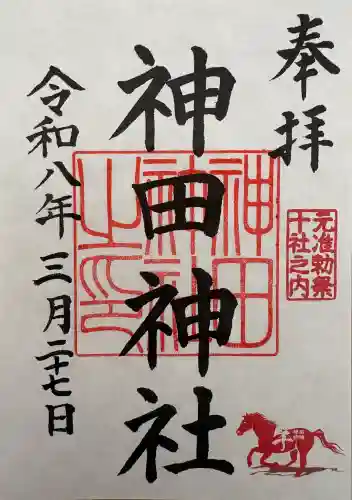 奉拝
元准勅祭
十社之内
神田神社
神田神社之印
令和八年三月二十七日